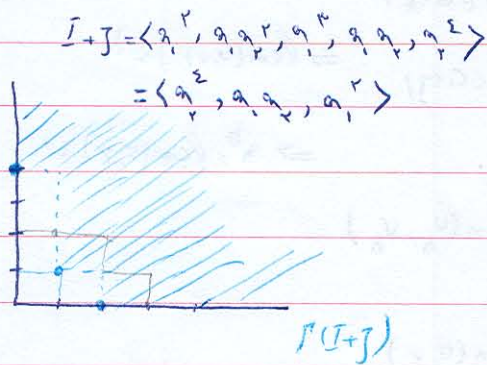 I+J = ⟨x₁^۲, x₁x₂^۲, x₁^۳, x₁x₂, x₂^٤⟩
= ⟨x₂^٤, x₁x₂, x₁^۲⟩
Γ(I+J)